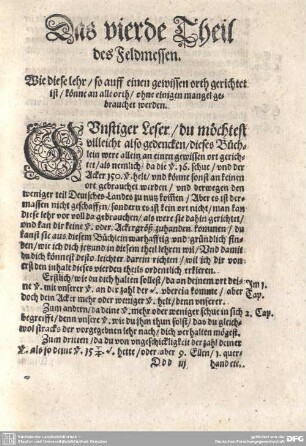 Das vierde Theil
des Feldmessen.
Wie diese lehr / so auff einen gewissen orth gerichtet
ist / könne an alle orth / ohne einigen mangel ge-
brauchet werden.
GUnstiger Leser / du möchtest
villeicht also gedencken / dieses Büch-
lein were allein an einen gewissen ort gerich-
tet / als nemlich / da die 16. schue / und der
Acker helt / und könne sonst an keinen
ort gebrauchet werden / und derwegen den
weniger teil Deutsches Landes zu nutz kom̃en / Aber es ist der-
massen nicht geschaffen / sondern es ist kein ort nicht / man kan
diese lehr vor voll da gebrauchen / als were sie dahin gerichtet /
und kan dir keine oder Ackergröß zuhanden kommen / du
kanst sie aus diesem Büchlein warhafftig und gründlich fin-
den / wie ich dich freundn in diesem theil lehren wil / Und damit
du dich könnest desto leichter darein richten / wil ich dir von
ersten inhalt dieses vierden theils ordentlich erkleren.
Erstlich / wie du dich halten solest / da an deinem ort dei-
ne mit unserer an der zahl der überein kom̃e / aber
doch dein Acker mehr oder weniger helt / denn unserer.
Im 1.
Cap.
Zum andern / da deine mehr oder weniger schue in sich
begreifft / denn unsere wie du ihm thun solst / das du gleich-
wol stracks der vorgegebnen lehr nach / dich verhalten mögest.
2. Cap.
Zum dritten / da du von ungeschickligkeit der zahl deiner
als so deine 15 hette / oder aber 9. Ellen / 1. quer-
Ddd iij
hand etc.